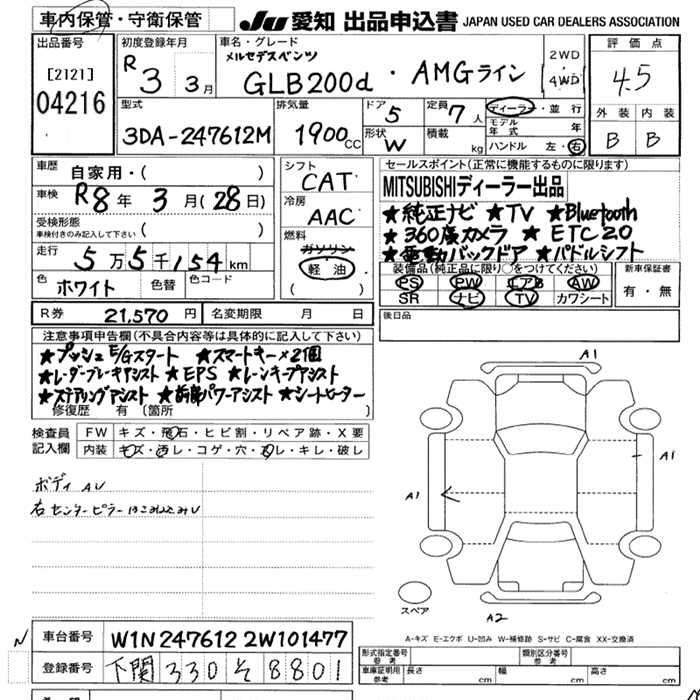 車内保管・守衛保管
JU 愛知 出品申込書 JAPAN USED CAR DEALERS ASSOCIATION
出品番号
[2121]
04216
初度登録年月
R 3 3月
車名・グレード
メルセデスベンツ
GLB200d ・ AMGライン
2WD
4WD
評価点
4.5
外装 内装
B B
型式
3DA-247612M
排気量
1900 CC
ドア
5
形状
W
定員
7 人
積載
kg
ディーラー・並行
モデル年式 年
ハンドル 左・右
車歴
自家用・( )
車検
R8年 3月(28日)
受検形態
車検付きのみ記入して下さい ( )
走行
5万5千154km
色
ホワイト
色替
色コード
シフト
CAT
冷房
AAC
燃料
ガソリン
軽油
( )
セールスポイント(正常に機能するものに限ります)
MITSUBISHIディーラー出品
★純正ナビ ★TV ★Bluetooth
★360度カメラ ★ETC2.0
★電動バックドア ★パドルシフト
装備品(純正品に限り○をつけてください)
PS PW エアB AW
SR ナビ TV カワシート
新車保証書
有・無
後日品
R券 21,570円
名変期限 月 日
注意事項申告欄(不具合内容等は具体的に記入して下さい)
★プッシュE/Gスタート ★スマートキー×2個
★レーダーブレーキアシスト ★EPS ★レーンキープアシスト
★ステアリングアシスト ★前席パワーアシスト ★シートヒーター
修復歴 有(箇所 )
検査員記入欄
FW キズ・飛石・ヒビ割・リペア跡・X要
内装 キズ・汚レ・コゲ・穴・スレ・キレ・破レ
ボディ AU
右センターピラー
A1
A1
A1
A2
スペア
A-キズ E-エクボ U-凹み W-補修跡 S-サビ C-腐食 XX-交換済
N
車台番号 W1N2476122W101477
登録番号 下関 330 そ 8801
形式指定番号 参考
類別区分番号 参考
車庫証明用 参考 長さ cm 幅 cm 高さ cm